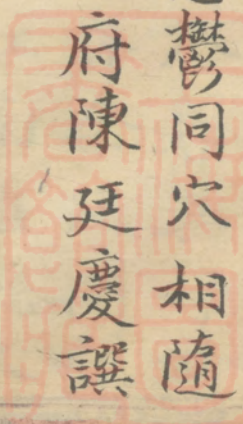 鬱同穴相隨
府陳廷慶譔